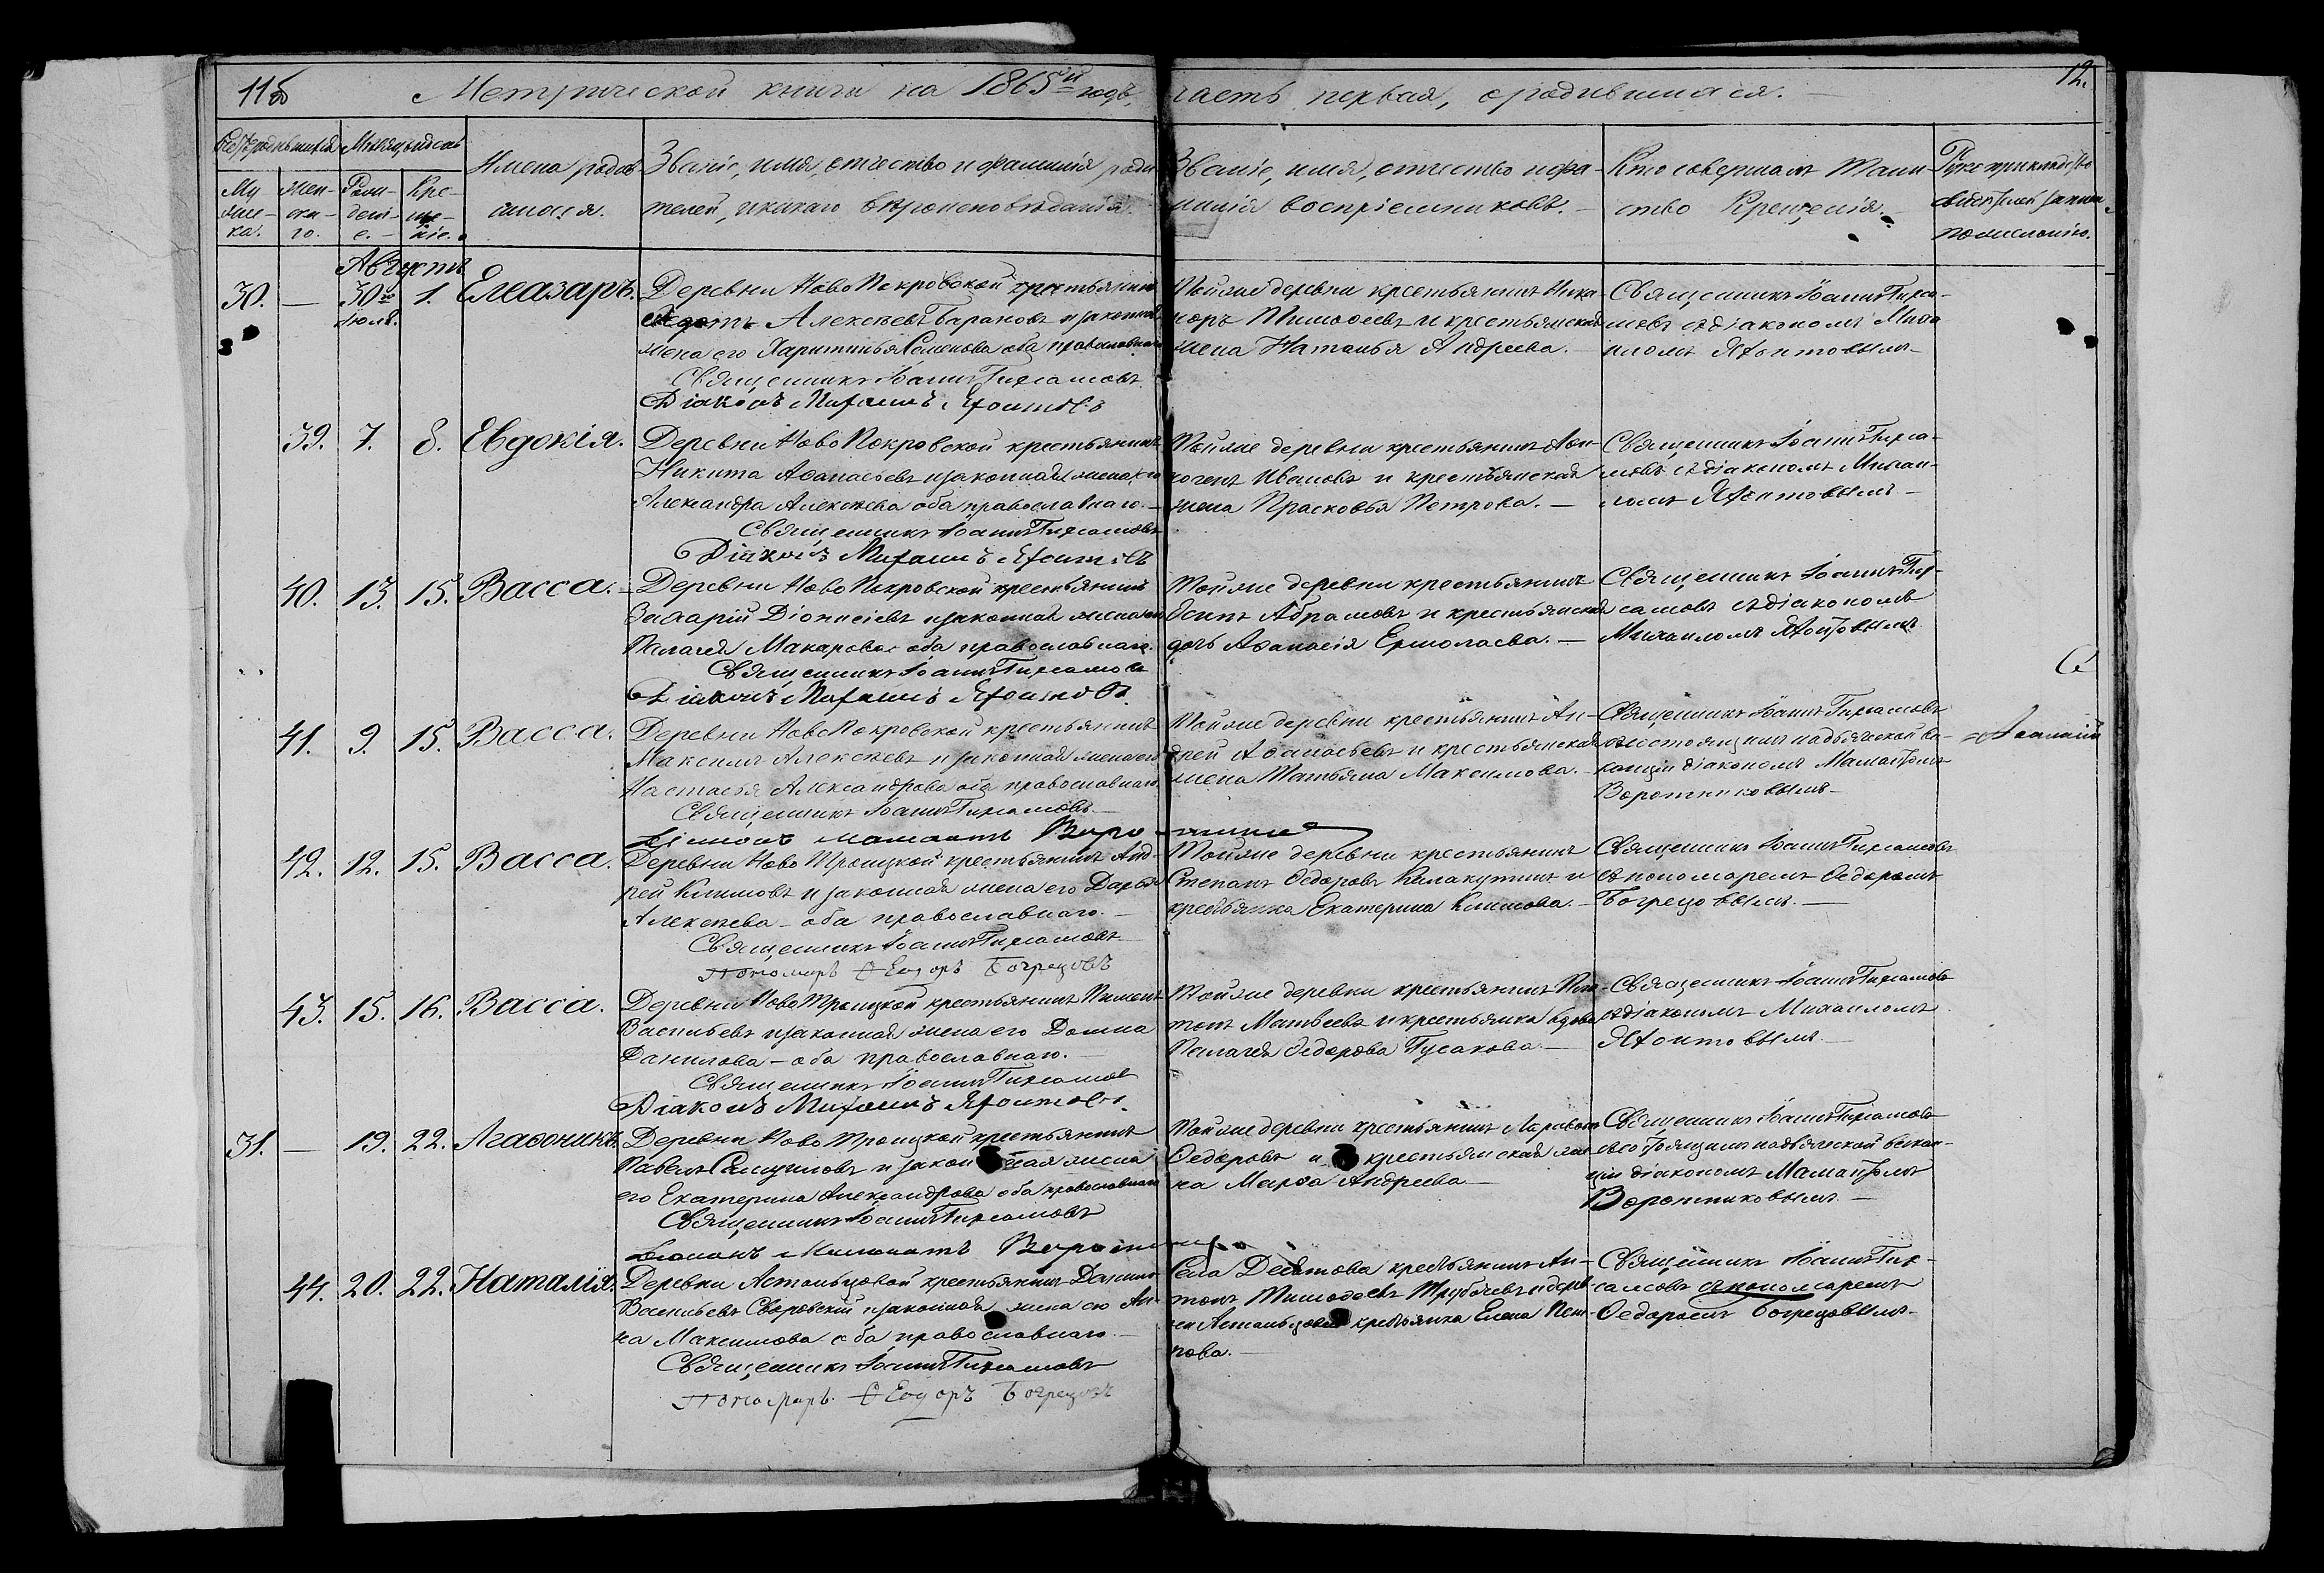 11об
Метрической книги на 1865й годъ, часть первая, о родившихся.
12.
Счетъ родившихся
Мѣсяцъ и день
Имена родив-
шихся.
Званіе, имя, отчество и фамилія роди-
телей, и какаго вѣроисповѣданія.
Званіе, имя, отчество и фа-
милія воспріемниковъ.
Кто совершалъ Таин-
ство Крещенія.
Рукоприкладство
свидѣтелей записи
по желанію.
Му
жес-
ка.
Жен-
ска-
го.
Рож-
дені-
е.
Кре-
ще-
ніе.
Августъ
30. — 30го Іюля. 1. Елеазаръ.
Деревни НовоПокровской крестьянинъ
Алексѣевъ Барановъ и законная
жена его Харитинья Семенова оба православнаго
Священникъ Іоаннъ Гирсамовъ
Діаконъ Михаилъ Яхонтовъ
Тойже деревни крестьянинъ Ника-
норъ Тимофеевъ и крестьянская
жена Наталья Андреева.
Священникъ Іоаннъ Гирса-
мовъ съ діакономъ Миха
иломъ Яхонтовымъ
39. 7. 8. Евдокія.
Деревни НовоПокровской крестьянинъ
Никита Аѳанасьевъ и законная жена его
Александра Алексѣева оба православнаго.
Священникъ Іоаннъ Гирсамовъ
Діаконъ Михаилъ Яхонтовъ
Тойже деревни крестьянинъ
Ивановъ и крестьянская
жена Прасковья Петрова.
Священникъ Іоаннъ Гирса-
мовъ съ діакономъ Михаи-
ломъ Яхонтовымъ
40. 13. 15. Васса.
Деревни НовоПокровской крестьянинъ
Захарій Діонисіевъ и законная жена его
Палагея Макарова оба православнаго.
Священникъ Іоаннъ Гирсамовъ
Діаконъ Михаилъ Яхонтовъ.
Тойже деревни крестьянинъ
Осипъ Абрамовъ и крестьянская
дочь Аѳанасія Ермолаева.
Священникъ Іоаннъ Гир-
самовъ съ діакономъ
Михаиломъ Яхонтовымъ
41. 9. 15. Васса.
Деревни НовоПокровской крестьянинъ
Максимъ Алексѣевъ и законная жена его
Настасья Александрова оба православнаго.
Священникъ Іоаннъ Гирсамовъ
Діаконъ Мамантъ Воротниковъ
Тойже деревни крестьянинъ Ан-
дрей Аѳанасьевъ и крестьянская
жена Татьяна Максимова.
Священникъ Іоаннъ Гирсамовъ
съ состоящимъ на дьяческой ва-
канціи діакономъ Мамантомъ
Воротниковымъ
42. 12. 15. Васса.
Деревни НовоТроицкой крестьянинъ Анд-
рей Климовъ и законная жена его Дарья
Алексѣева — оба православнаго.
Священникъ Іоаннъ Гирсамовъ
Пономарь Ѳеодоръ Богрецовъ
Тойже деревни крестьянинъ
Степанъ Ѳедоровъ и
крестьянка Екатерина Климова.
Священникъ Іоаннъ Гирсамовъ
съ пономаремъ Ѳедоромъ
Богрецовымъ.
43. 15. 16. Васса.
Деревни НовоТроицкой крестьянинъ Пименъ
Васильевъ и законная жена его Домна
Данилова — оба православнаго.
Священникъ Іоаннъ Гирсамовъ
Діаконъ Михаилъ Яхонтовъ.
Тойже деревни крестьянинъ Пла-
тонъ Матвеевъ и крестьянка вдова
Палагея Ѳедорова Гусакова.
Священникъ Іоаннъ Гирсамовъ
съ діакономъ Михаиломъ
Яхонтовымъ.
31. — 19. 22. Агаѳоникъ.
Деревни НовоТроицкой крестьянинъ
Павелъ Самуиловъ и законная жена
его Екатерина Александрова оба православнаго
Священникъ Іоаннъ Гирсамовъ
Діаконъ Мамантъ Воротниковъ
Тойже деревни крестьянинъ
Ѳедоровъ и крестьянская же-
на Марѳа Андреева
Священникъ Іоаннъ Гирсамовъ
съ состоящимъ на дьяческой вакан-
ціи діакономъ Мамантомъ
Воротниковымъ.
44. 20. 22. Наталія.
Деревни Астальцовой крестьянинъ Даниилъ
Васильевъ Сверовскій и законная жена его Ан-
на Максимова оба православнаго.
Священникъ Іоаннъ Гирсамовъ
Пономарь. Ѳеодоръ Богрецовъ
Села Десятова крестьянинъ Ан-
тонъ Тимофеевъ Трубачевъ и дерев-
ни Астальцовой крестьянка Елена
пова.
Священникъ Іоаннъ Гир-
самовъ съ пономаремъ
Ѳедоромъ Богрецовымъ.